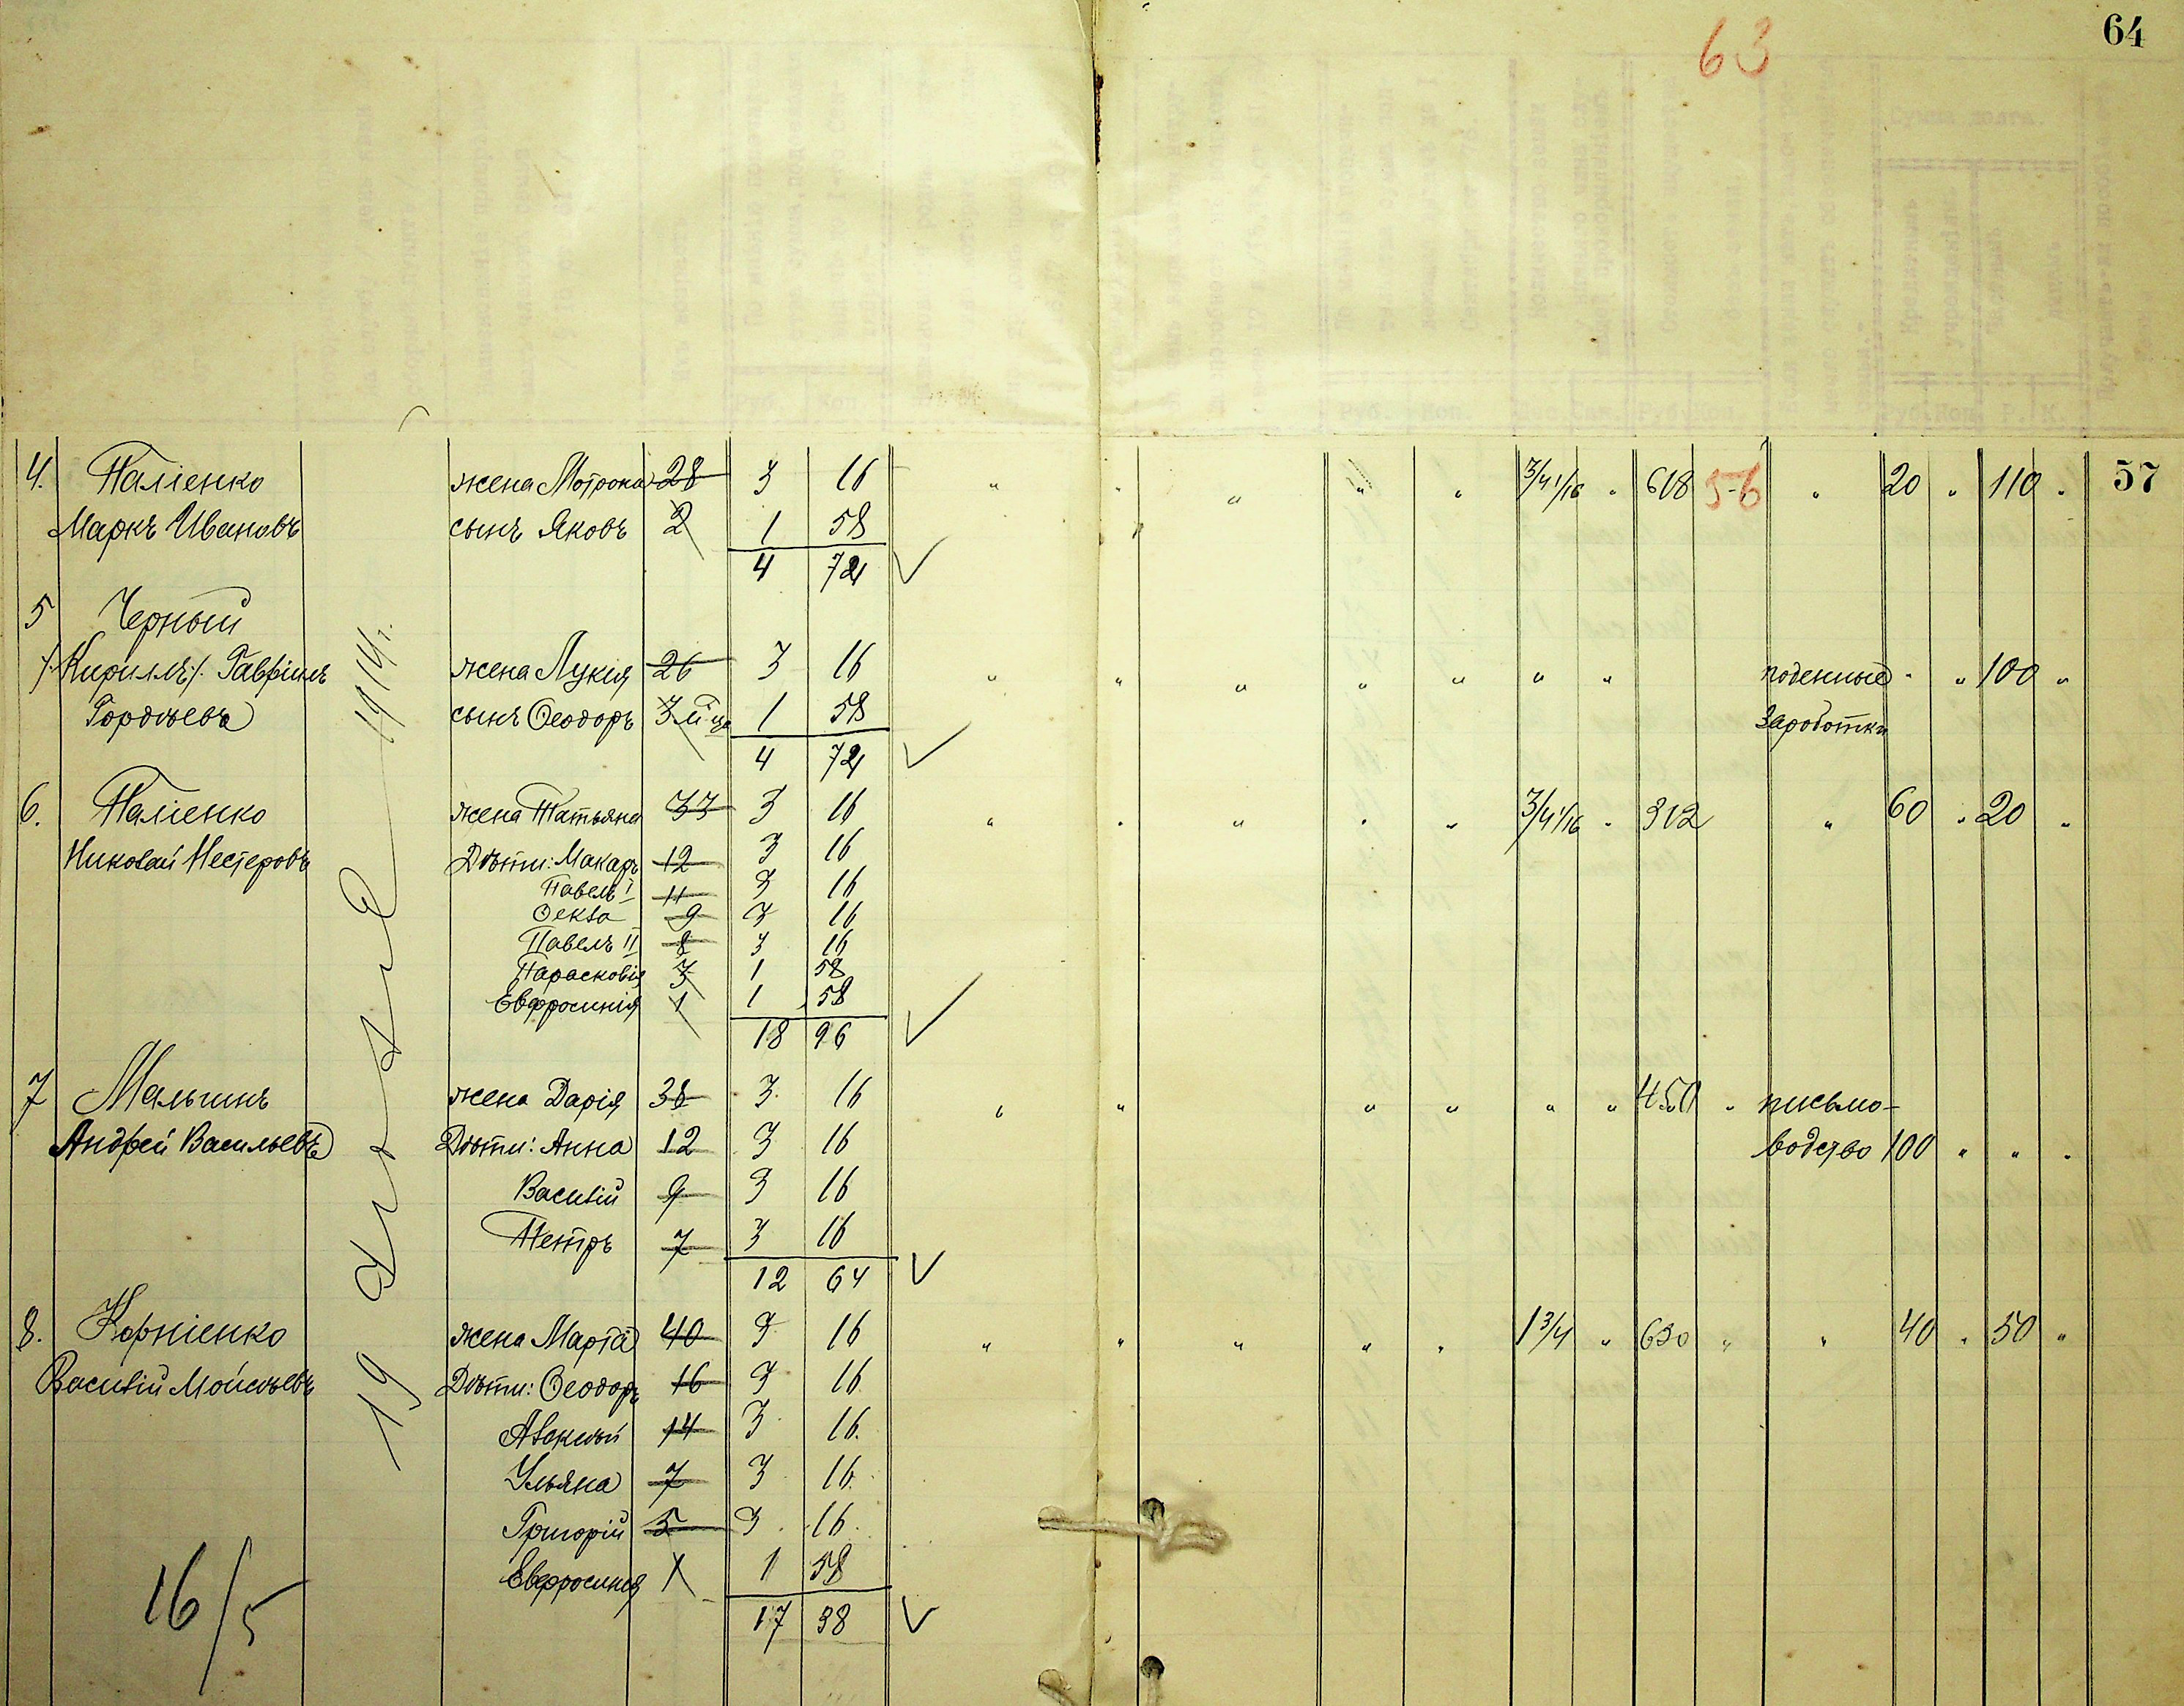 64
63
4. Паліенко жена Мотрона 28 3 16 " " " " " 3/4 1/16 " 618 56 " 20 " 110 " 57
Маркъ Ивановъ сынъ Яковъ 2 1 58
4 74
5 Черный
/.Кирилъ/. Гавріилъ жена Лукія 26 3 16 " " " " " " " поденные " " 100 "
Гордѣевъ сынъ Ѳеодоръ 3 м-ца 1 58 Заработки
4 74
6. Паліенко жена Татьяна 33 3 16 " " " " " 3/4 1/16 " 312 " 60 " 20 "
Николай Нестеровъ Дѣти: Макаръ 12 3 16
Павелъ I 11 3 16
Ѳекла 9 3 16
Павелъ II 8 3 16
Парасковія 3 1 58
Евфросинія 1 1 58
18 96
7 Малышъ жена Дарія 38 3 16 " " " " " " 450 " письмо-
Андрей Васильевъ Дѣти: Анна 12 3 16 водство 100 " " "
Василій 9 3 16
Петръ 7 3 16
12 64
8. Корніенко жена Марта 40 3 16 " " " " " 1 3/4 " 650 " " 40 " 50 "
Василій Мойсѣевъ Дѣти: Ѳеодоръ 16 3 16
Алексѣй 14 3 16.
Ульяна 7 3 16.
Григорій 5 3 16.
Евфросинія 1 1 58
17 38
19 1914 г.
16/5